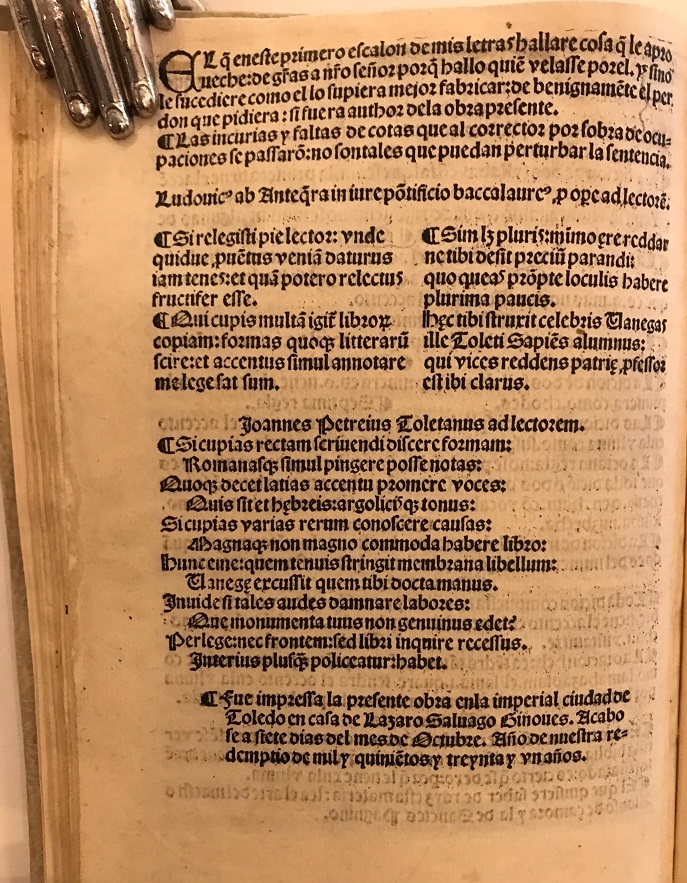 EL q̄ eneste primero escalon de mis letras hallare cosa q̄ le apro
ueche: de gr̃as a nr̃o señor porq̄ hallo quiē velasse porel. y sino
le sucediere como el lo supiera mejor fabricar: de benignamēte el per
don que pidiera: si fuera author dela obra presente.
¶ Las incurias y faltas de cotas que al corrector por sobra de ocu-
paciones se passarō: no son tales que puedan perturbar la sentencia.
Ludouicꝰ ab Anteq̄ra in iure pōtificio baccalaureꝰ, ꝓ oꝑe ad lectorē.
¶ Si relegisti pie lector: vnde
quidue ꝓuētus veniā daturus
iam tenes: et quā potero relectus
fructifer esse.
¶ Qui cupis multā igit̃ libroꝝ
copiam: formas quoqꝫ litterarū
scire: et accentus simul annotare
me lege sat sum.
¶ Sim lꝫ pluris: mīmo ęre reddar
ne tibi desit preciū parandi:
quo queas prōpte loculis habere
plurima paucis.
Hęc tibi struxit celebris Vanegas
ille Toleti Sapiēs alumnus:
qui vices reddens patrię, ꝓfessor
est ibi clarus.
Joannes Petreius Toletanus ad lectorem.
¶ Si cupias rectam scriuendi discere formam:
Romanasqꝫ simul pingere posse notas:
Quoqꝫ decet latias accentu promere voces:
Quis sit et hębreis: argolicisqꝫ tonus:
Si cupias varias rerum conoscere causas:
Magnaqꝫ non magno commoda habere libro:
Hunc eme: quem tenuis stringit membrana libellum:
Vanegę excussit quem tibi docta manus.
Inuide si tales audes damnare labores:
Que monumenta tuus non genuinus edet?
Perlege: nec frontem: sed libri inquire recessus.
Interius plusqꝫ policeatur: habet.
¶ Fue impressa la presente obra enla imperial ciudad de
Toledo en casa de Lazaro Saluago Ginoues. Acabo
se a siete dias del mes de Octubre. Año de nuestra re-
demptio de mil y quiniētos y treynta y vn años.